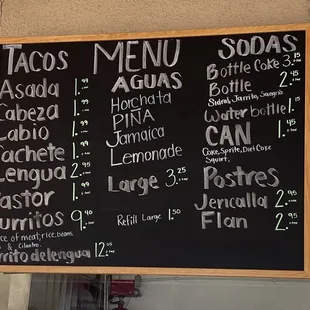 TACOS
Asada 1.99
Cabeza 1.99
Labio 1.99
Cachete 1.99
Lengua 2.95
Pastor 1.99
Burritos 9.40
of meat, rice, beans
& Cilantro
Burrito de lengua 12.95
MENU
AGUAS
Horchata
PIÑA
Jamaica
Lemonade
Large 3.25
Refill Large 1.50
SODAS
Bottle Coke 3.15
Bottle 2.45
Sidral, Jarrito, Sangria
Water bottle 1.15
CAN 1.45
Coke, Sprite, Diet Coke
Squirt,
Postres
Jericalla 2.95
Flan 2.95